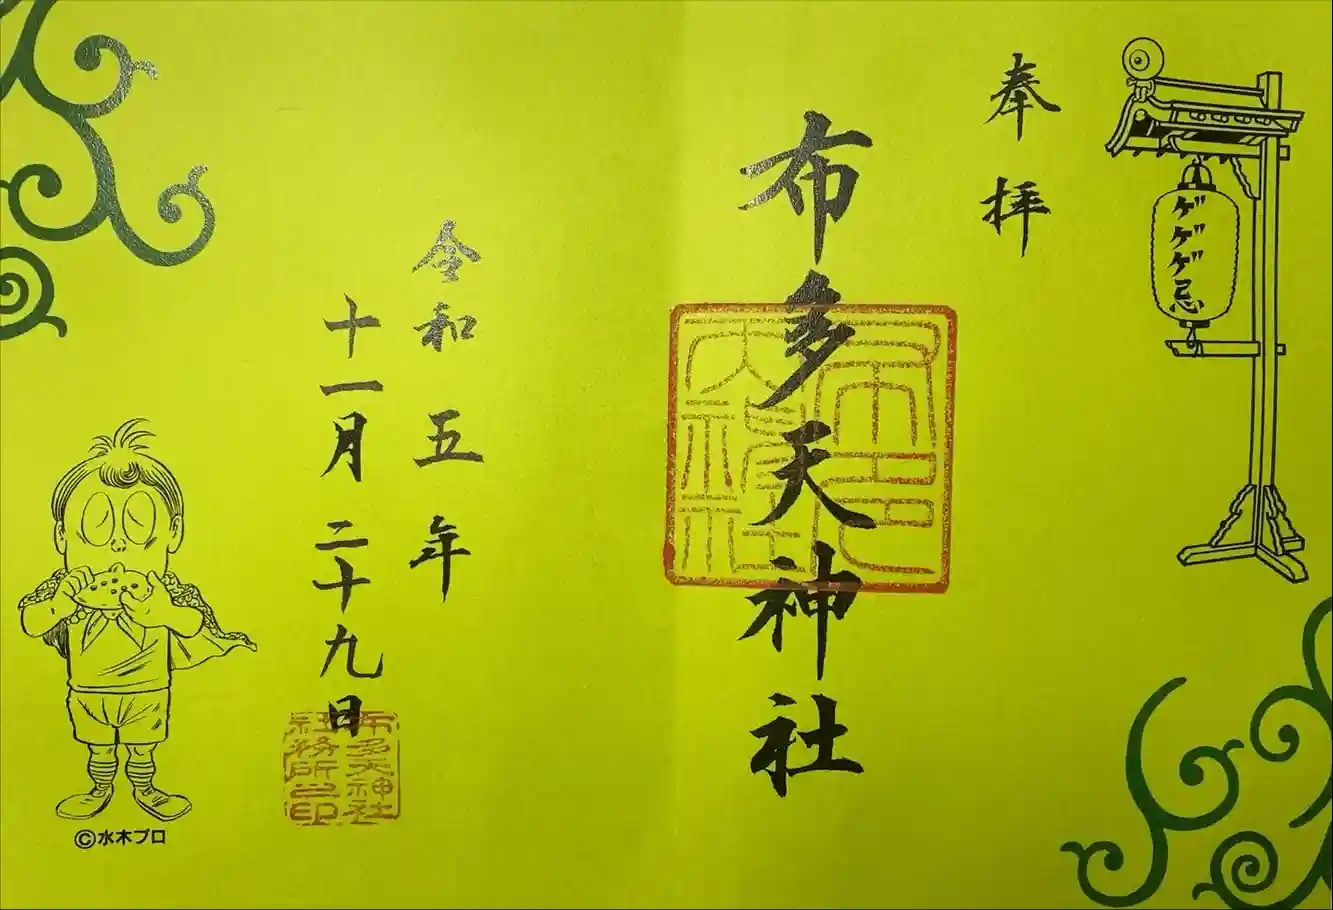 ゲゲゲ忌
奉拝
布多天神社
令和五年
十一月二十九日
布多天神社
社務所之印
©水木プロ